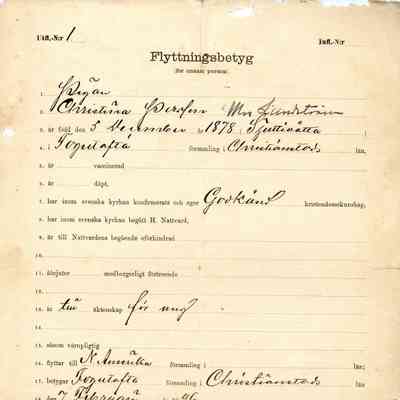 Utfl.-N:r 1 Infl.-N:r
Flyttningsbetyg
(för ensam person).
1. Pigan
2. Christina Persson Mrs Lundström
3. är född den 5 December 1878 Sjuttioåtta
4. i församling Christianstads län,
5. är vaccinerad
6. är döpt,
7. har inom svenska kyrkan konfirmerats och eger Godkänd kristendomskunskap,
8. har inom svenska kyrkan begått H. Nattvard,
9. är till Nattvardens begående oförhindrad
10.
11. åtnjuter medborgerligt förtroende
12.
13. är till äktenskap för ung
14.
15. såsom värnpligtig
16. flyttar till N. Amerika församling i län;
17. betygar församling i Christianstads län
18. den 7 Februari 96